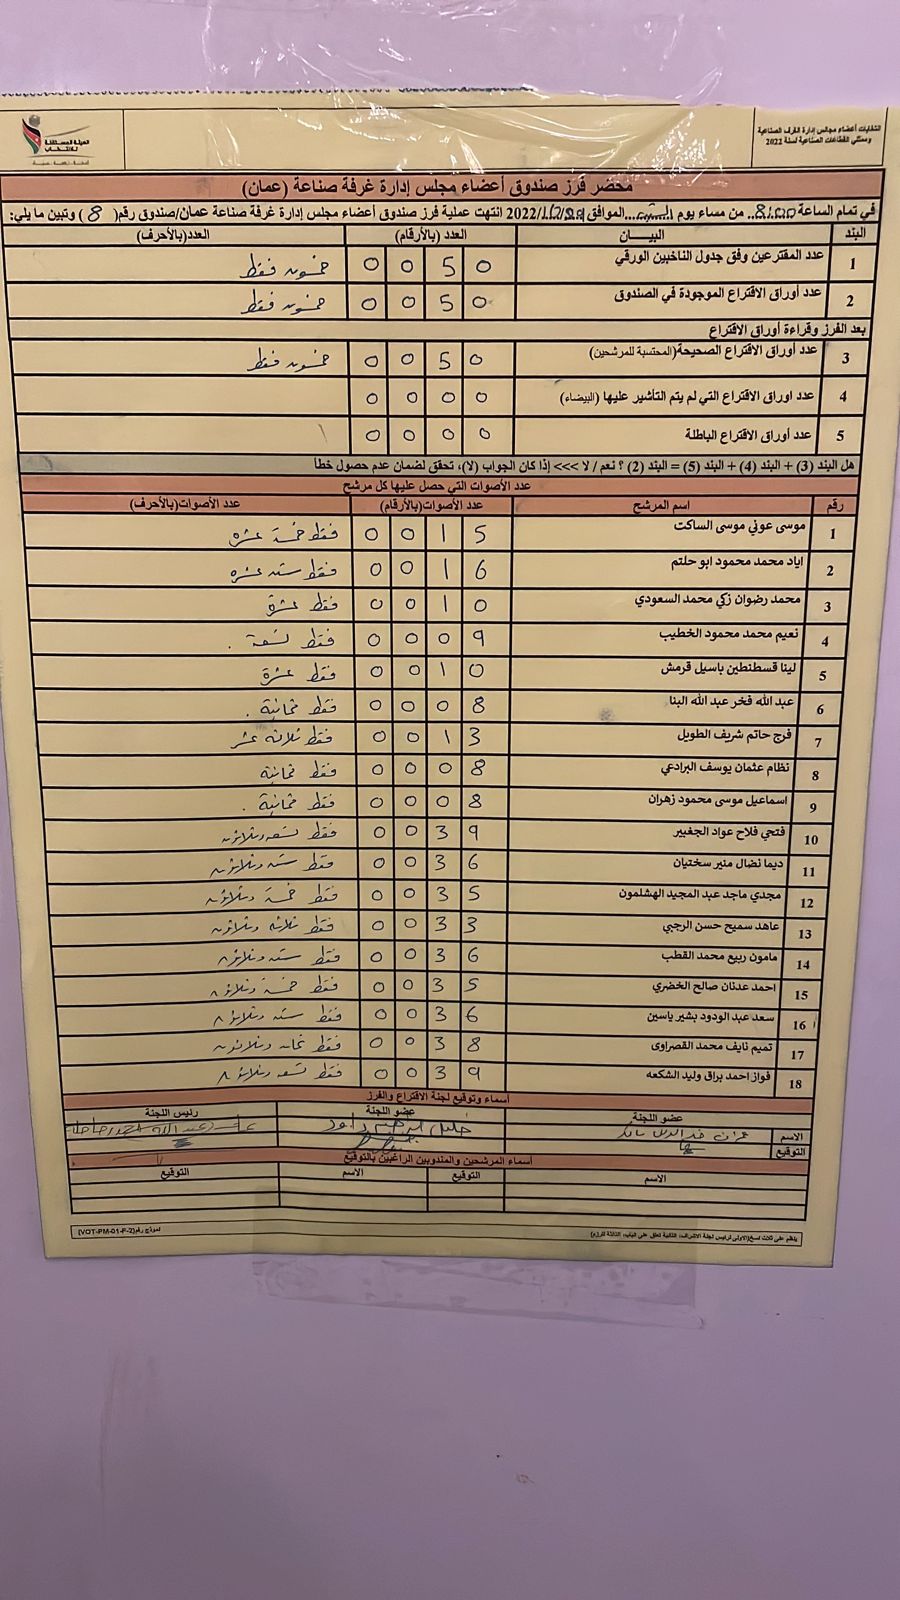 انتخابات أعضاء مجلس إدارة الغرف الصناعية
وممثلي القطاعات الصناعية لسنة 2022
الهيئة المستقلة
للانتخاب
محضر فرز صندوق أعضاء مجلس إدارة غرفة صناعة (عمان)
في تمام الساعة 8:00 من مساء يوم السبت الموافق 2022/ انتهت عملية فرز صندوق أعضاء مجلس إدارة غرفة صناعة عمان/صندوق رقم( 8 ) وتبين ما يلي:
البند البيـــان العدد (بالأرقام) العدد(بالأحرف)
1 عدد المقترعين وفق جدول الناخبين الورقي 0 0 5 0 خمسون فقط
2 عدد أوراق الاقتراع الموجودة في الصندوق 0 0 5 0 خمسون فقط
بعد الفرز وقراءة أوراق الاقتراع
3 عدد أوراق الاقتراع الصحيحة(المحتسبة للمرشحين) 0 0 5 0 خمسون فقط
4 عدد اوراق الاقتراع التي لم يتم التأشير عليها (البيضاء) 0 0 0 0
5 عدد أوراق الاقتراع الباطلة 0 0 0 0
هل البند (3) + البند (4) + البند (5) = البند (2) ؟ نعم / لا >>> إذا كان الجواب (لا)، تحقق لضمان عدم حصول خطأ
عدد الأصوات التي حصل عليها كل مرشح
رقم اسم المرشح عدد الأصوات(بالأرقام) عدد الأصوات(بالأحرف)
1 موسى عوني موسى الساكت 0 0 1 5 فقط خمسة عشره
2 اياد محمد محمود ابو حلتم 0 0 1 6 فقط سته عشره
3 محمد رضوان زكي محمد السعودي 0 0 1 0 فقط عشرة
4 نعيم محمد محمود الخطيب 0 0 0 9 فقط تسعة .
5 لينا قسطنطين باسيل قرمش 0 0 1 0 فقط عشرة
6 عبد الله فخر عبد الله البنا 0 0 0 8 فقط ثمانية .
7 فرج حاتم شريف الطويل 0 0 1 3 فقط ثلاثه عشر
8 نظام عثمان يوسف البرادعي 0 0 0 8 فقط ثمانية
9 اسماعيل موسى محمود زهران 0 0 0 8 فقط ثمانية .
10 فتحي فلاح عواد الجغبير 0 0 3 9 فقط تسعه وثلاثون
11 ديما نضال منير سختيان 0 0 3 6 فقط سته وثلاثون
12 مجدي ماجد عبد المجيد الهشلمون 0 0 3 5 فقط خمسة وثلاثون
13 عاهد سميح حسن الرجبي 0 0 3 3 فقط ثلاثه وثلاثون
14 مامون ربيع محمد القطب 0 0 3 6 فقط سته وثلاثون
15 احمد عدنان صالح الخضري 0 0 3 5 فقط خمسة وثلاثون
16 سعد عبد الودود بشير ياسين 0 0 3 6 فقط سته وثلاثون
17 تميم نايف محمد القصراوى 0 0 3 8 فقط ثمان وثلاثون
18 فواز احمد براق وليد الشكعه 0 0 3 9 فقط تسعه وثلاثون
أسماء وتوقيع لجنة الاقتراع والفرز
عضو اللجنة عضو اللجنة رئيس اللجنة
الاسم
التوقيع
أسماء المرشحين والمندوبين الراغبين بالتوقيع
الاسم التوقيع الاسم التوقيع
ينظم على ثلاث نسخ(الاولى لرئيس لجنة الاشراف، الثانية تعلق على الباب، الثالثة للرزم) نموذج رقم(VOT-PM-01-F-2)